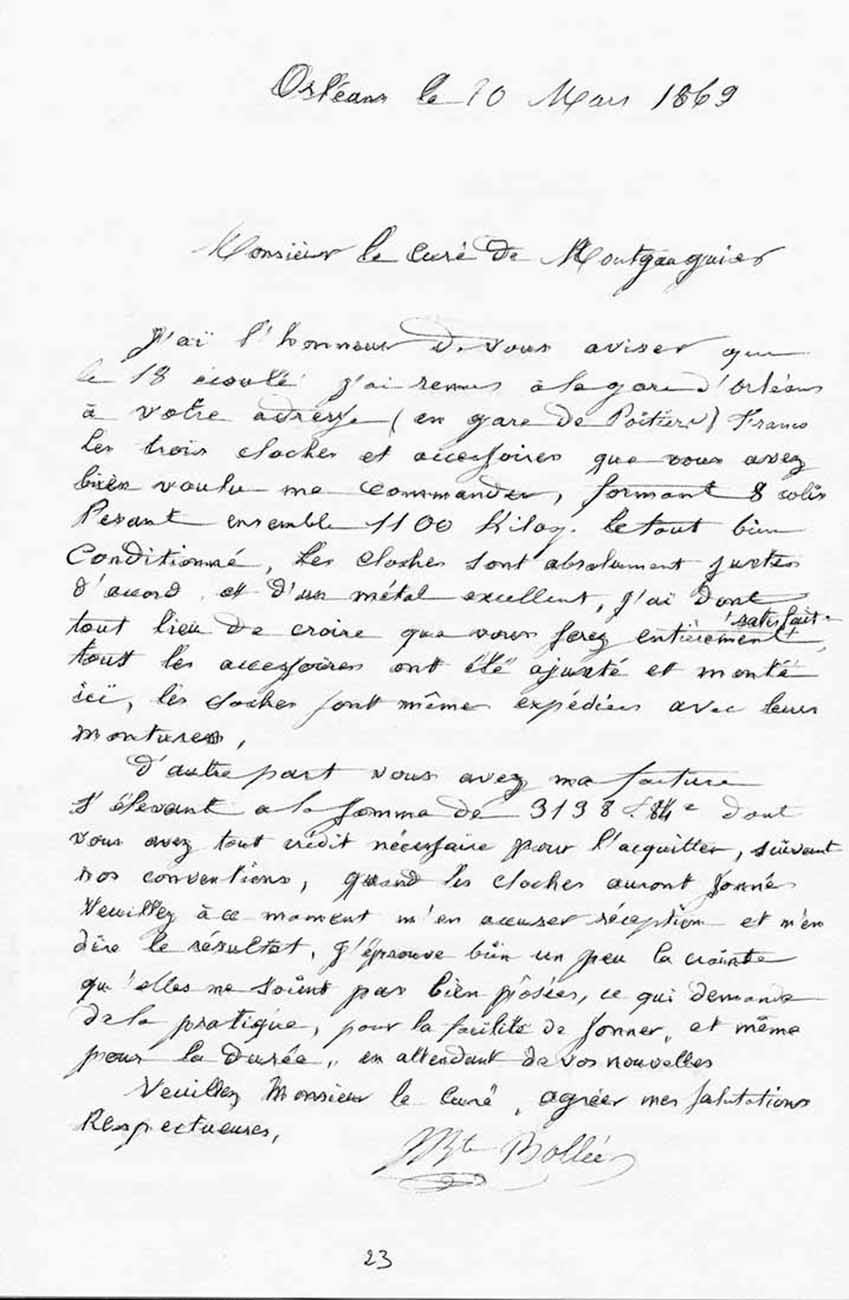 Orléans le 20 Mars 1869
Monsieur le Curé de Montgauguier
J'ai l'honneur de vous aviser que
le 18 écoulé j'ai remis à la gare d'Orléans
à votre adresse (en gare de Poitiers) Franco
les trois cloches et accessoires que vous avez
bien voulu me commander, formant 8 colis
Pesant ensemble 1100 Kilog. le tout bien
Conditionné, les cloches sont absolument justes
d'acord et d'un métal excellent, j'ai dont
tout lieu de croire que vous serez entièrement satisfait.
tout les accessoires ont été ajusté et monté
ici, les cloches sont même expédiées avec leurs
montures,
D'autre part vous avez ma facture
s'élevant a la somme de 3198 f. 84c dont
vous avez tout crédit nécessaire pour l'acquitter, suivant
nos conventions, quand les cloches auront sonné
Veuillez à ce moment m'en accuser réception et m'en
dire le résultat, j'éprouve bien un peu la crainte
qu'elles ne soient pas bien posées, ce qui demande
de la pratique, pour la facilité de sonner, et même
pour la durée, en attendant de vos nouvelles
Veuillez Monsieur le Curé, agréer mes salutations
Respectueuses,
Bollée
23